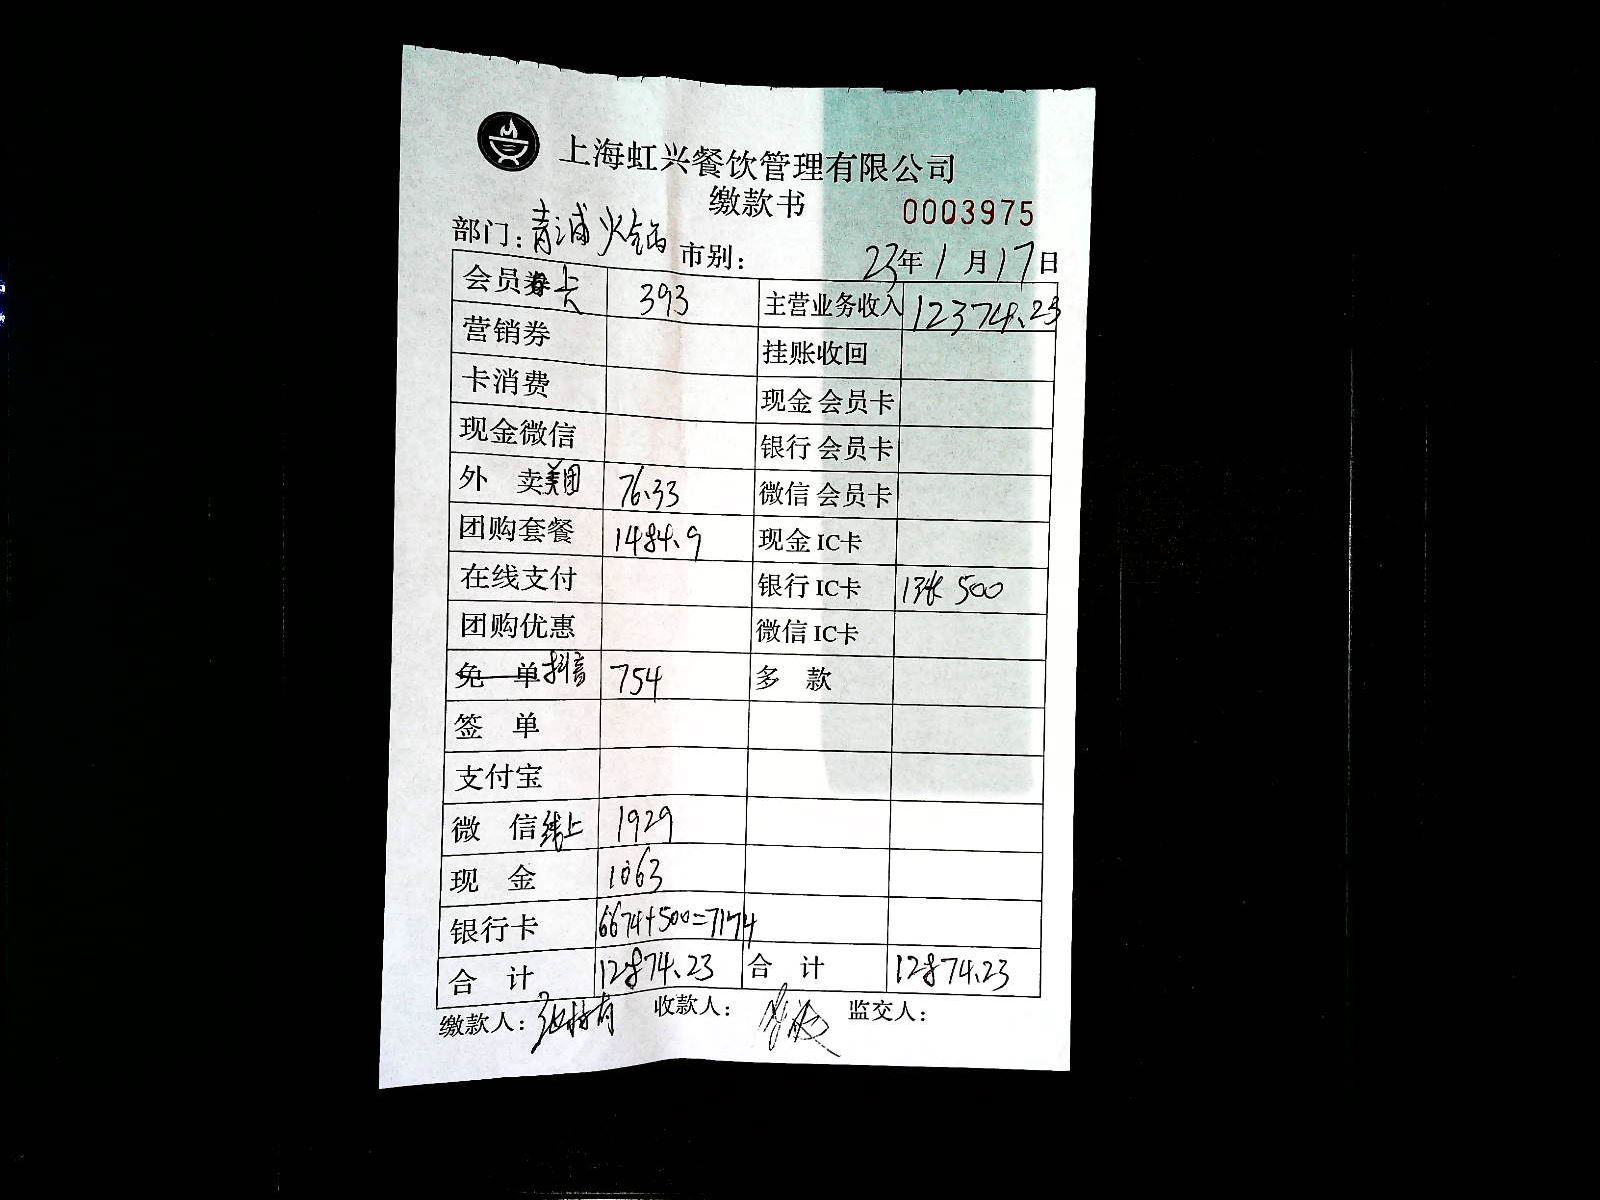 上海虹兴餐饮管理有限公司
缴款书 0003975
部门：青浦火锅 市别： 23年1月17日
会员卡 393 主营业务收入 12374.23
营销券 挂账收回
卡消费 现金 会员卡
现金微信 银行 会员卡
外 卖美团 76.33 微信 会员卡
团购套餐 1484.9 现金 IC卡
在线支付 银行 IC卡 1张 500
团购优惠 微信 IC卡
免 单抖音 754 多 款
签 单
支付宝
微 信线上 1929
现 金 1063
银行卡 6674+500=7174
合 计 12874.23 合 计 12874.23
缴款人： 收款人： 监交人：